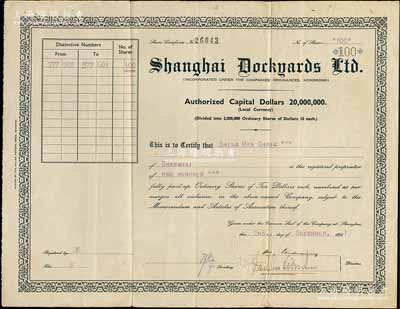 Share Certificate No 26643
No. of Shares "100"
*100*
Distinctive Numbers
No. of Shares
From
To
100
Shanghai Dockyards Ltd.
(INCORPORATED UNDER THE COMPANIES ORDINANCES, HONGKONG)
Authorized Capital Dollars 20,000,000.
(Local Currency)
(Divided into 2,000,000 Ordinary Shares of Dollars 10 each)
This is to Certify that
of SHANGHAI is the registered proprietor
of ONE HUNDRED ***
fully paid-up Ordinary Shares of Ten Dollars each numbered as per
margin all inclusive, in the above-named Company, subject to the
Memorandum and Articles of Association thereof.
Given under the Common Seal of the Company at Shanghai,
this day of DECEMBER, 194
Registered by
Secretary
Director